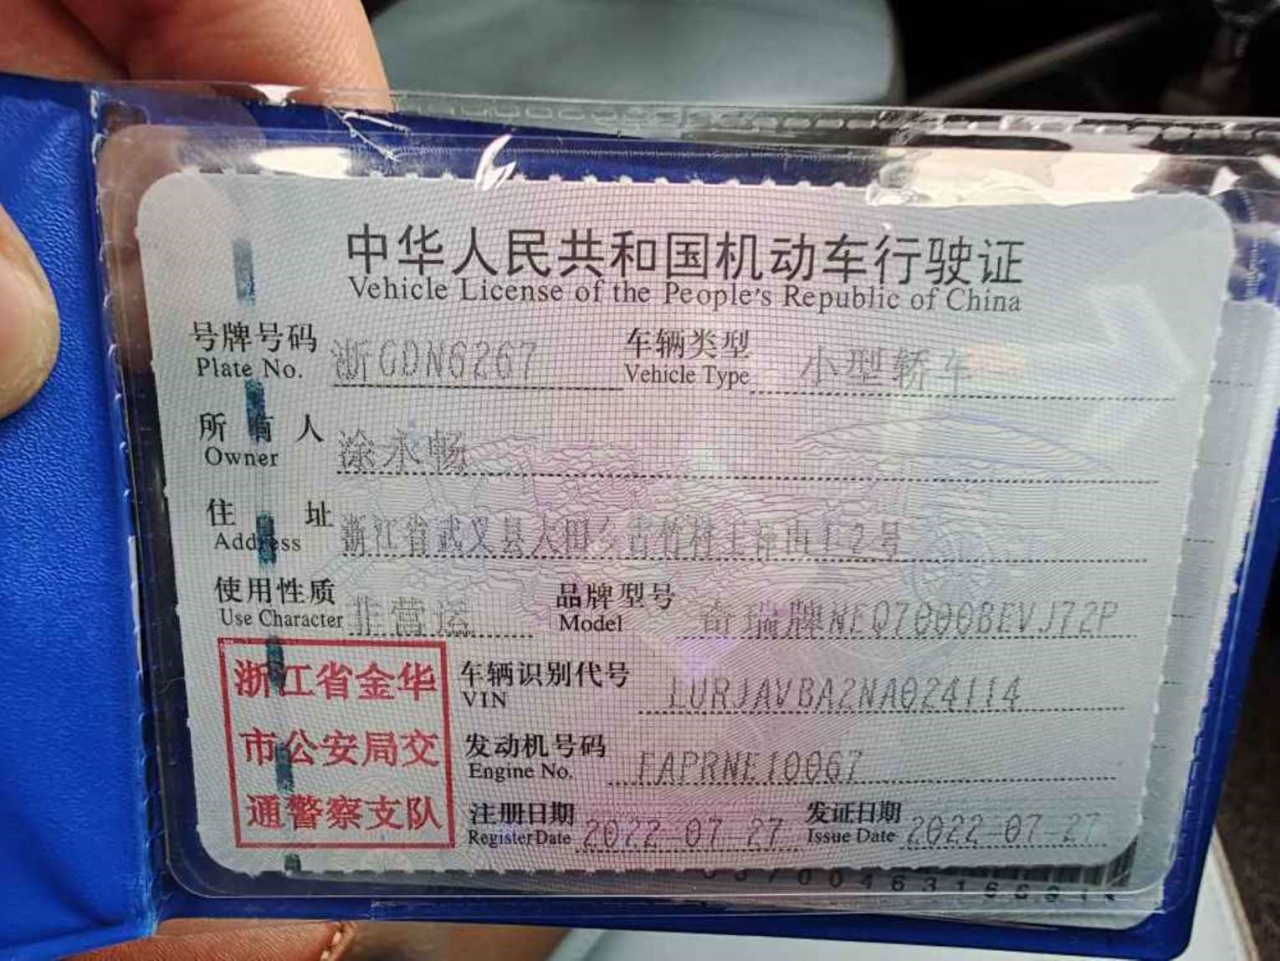 中华人民共和国机动车行驶证
Vehicle License of the People's Republic of China
号牌号码 浙GDN6267 车辆类型 小型轿车
Plate No. Vehicle Type
所有人 涂永畅
Owner
住址 浙江省武义县大田乡古竹村王锌山上2号
Address
使用性质 非营运 品牌型号 奇瑞牌NEQ7000BEVJ72P
Use Character Model
浙江省金华
市公安局交
通警察支队
车辆识别代号 LURJAVBA2NA024114
VIN
发动机号码 FAPRNE10067
Engine No.
注册日期 2022-07-27 发证日期 2022-07-27
Register Date Issue Date